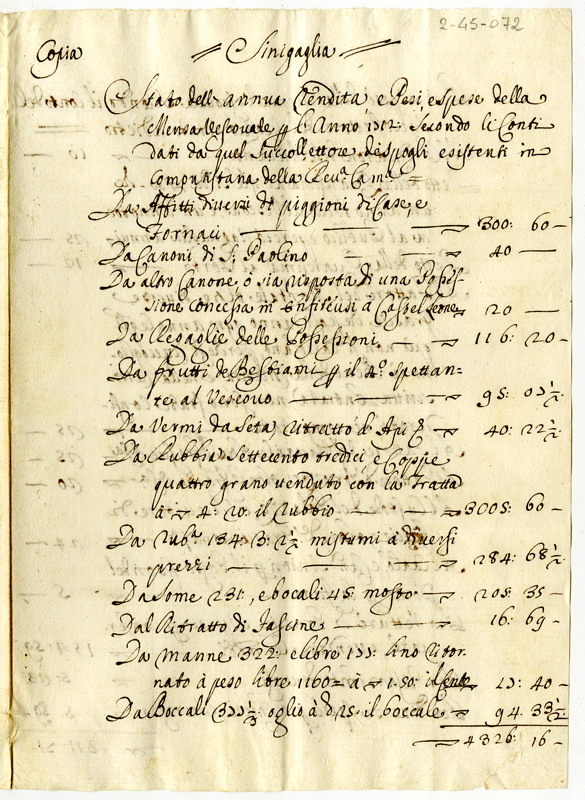 2-45-072
Copia
Sinigaglia
Stato dell'annua Rendita, e Pesi, e spese della
Mensa Vescovale l'Anno Secondo li Conti
dati da quel Succollettore de spogli esistenti in
Computistaria della Reu.a Cam.a
Da Affitti diversi di piggioni di Case, e
Fornaci 300: 60
Da Canoni di S. Paolino 40
Da altro Canone, o sia risposta di una Posses-
sione concessa in enfiteusi a Castel Leone 20
Da Regaglie delle Possessioni 116: 20
Da frutti de Bestiami il 4.o spettan-
te al Vescovo 95: 03½
Da Vermi da Seta, ritratto d'Api 40: 22½
Da Rubbia Settecento tredici, e Coppe
quattro grano venduto con la Tratta
à 4: 20: il rubbio 3005: 60
Da Rub.a 134: 3: 2½ mistumi à diversi
prezzi 284: 68½
Da Some 231:, e bocali 45: mosto 205: 35
Dal Ritratto di Fascine 16: 69
Da Manne 322: e libre lino ritor-
nato à peso libre 1160 à 1:50: il 40
Da Boccali oglio à il boccale 94. 33½
4326: 16